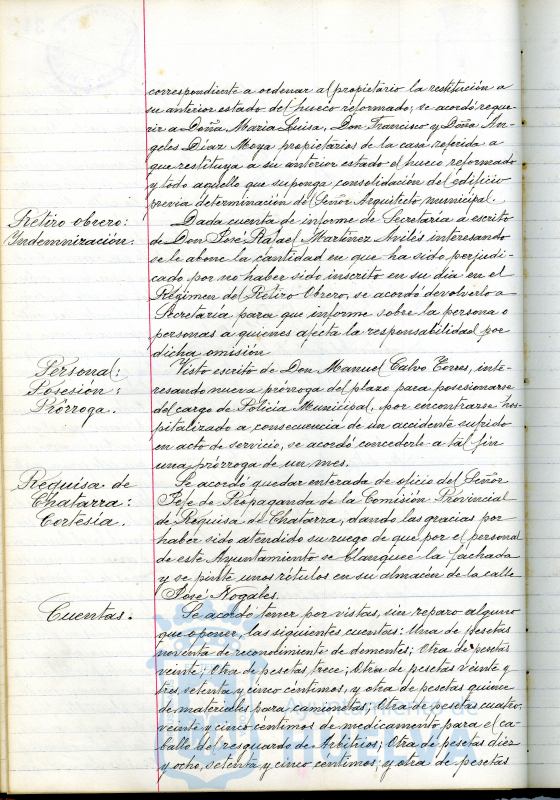 correspondiente a ordenar al propietario la restitución a
su anterior estado del hueco reformado, se acordó reque-
rir a Doña Maria Luisa, Don Francisco y Doña An-
geles Díaz Moya propietarios de la casa referida a
que restituya a su anterior estado el hueco reformado
y todo aquello que suponga consolidación del edificio
previa determinación del Señor Arquitecto municipal.
Retiro obrero:
Indemnización.
Dada cuenta de informe de Secretaria a escrito
de Don José Rafael Martínez Avilés interesando
se le abone la cantidad en que ha sido perjudi-
cado por no haber sido inscrito en su dia en el
Régimen del Retiro Obrero, se acordó devolverlo a
Secretaria para que informe sobre la persona o
personas a quienes afecta la responsabilidad por
dicha omisión
Personal:
Posesión:
Prórroga.
Visto escrito de Don Manuel Calvo Torres, inte-
resando nueva prórroga del plazo para posesionarse
del cargo de Policía Municipal, por encontrarse hos-
pitalizado a consecuencia de un accidente sufrido
en acto de servicio, se acordó concederle a tal fin
una prórroga de un mes.
Requisa de
Chatarra:
Cortesía.
Se acordó quedar enterada de oficio del Señor
Jefe de Propaganda de la Comisión Provincial
de Requisa de Chatarra, dando las gracias por
haber sido atendido su ruego de que por el personal
de este Ayuntamiento se blanqueé la fachada
y se pinte unos rótulos en su almacén de la calle
José Nogales.
Cuentas.
Se acordó tener por vistas, sin reparo alguno
que oponer, las siguientes cuentas: Una de pesetas
noventa de reconocimiento de dementes; Otra de pesetas
veinte; Otra de pesetas trece; Otra de pesetas veinte y
tres, setenta y cinco céntimos, y otra de pesetas quince
de materiales para camionetas; Otra de pesetas cuatro,
veinte y cinco céntimos de medicamento para el ca-
ballo del resguardo de Arbitrios; Otra de pesetas diez
y ocho, setenta y cinco céntimos; y otra de pesetas